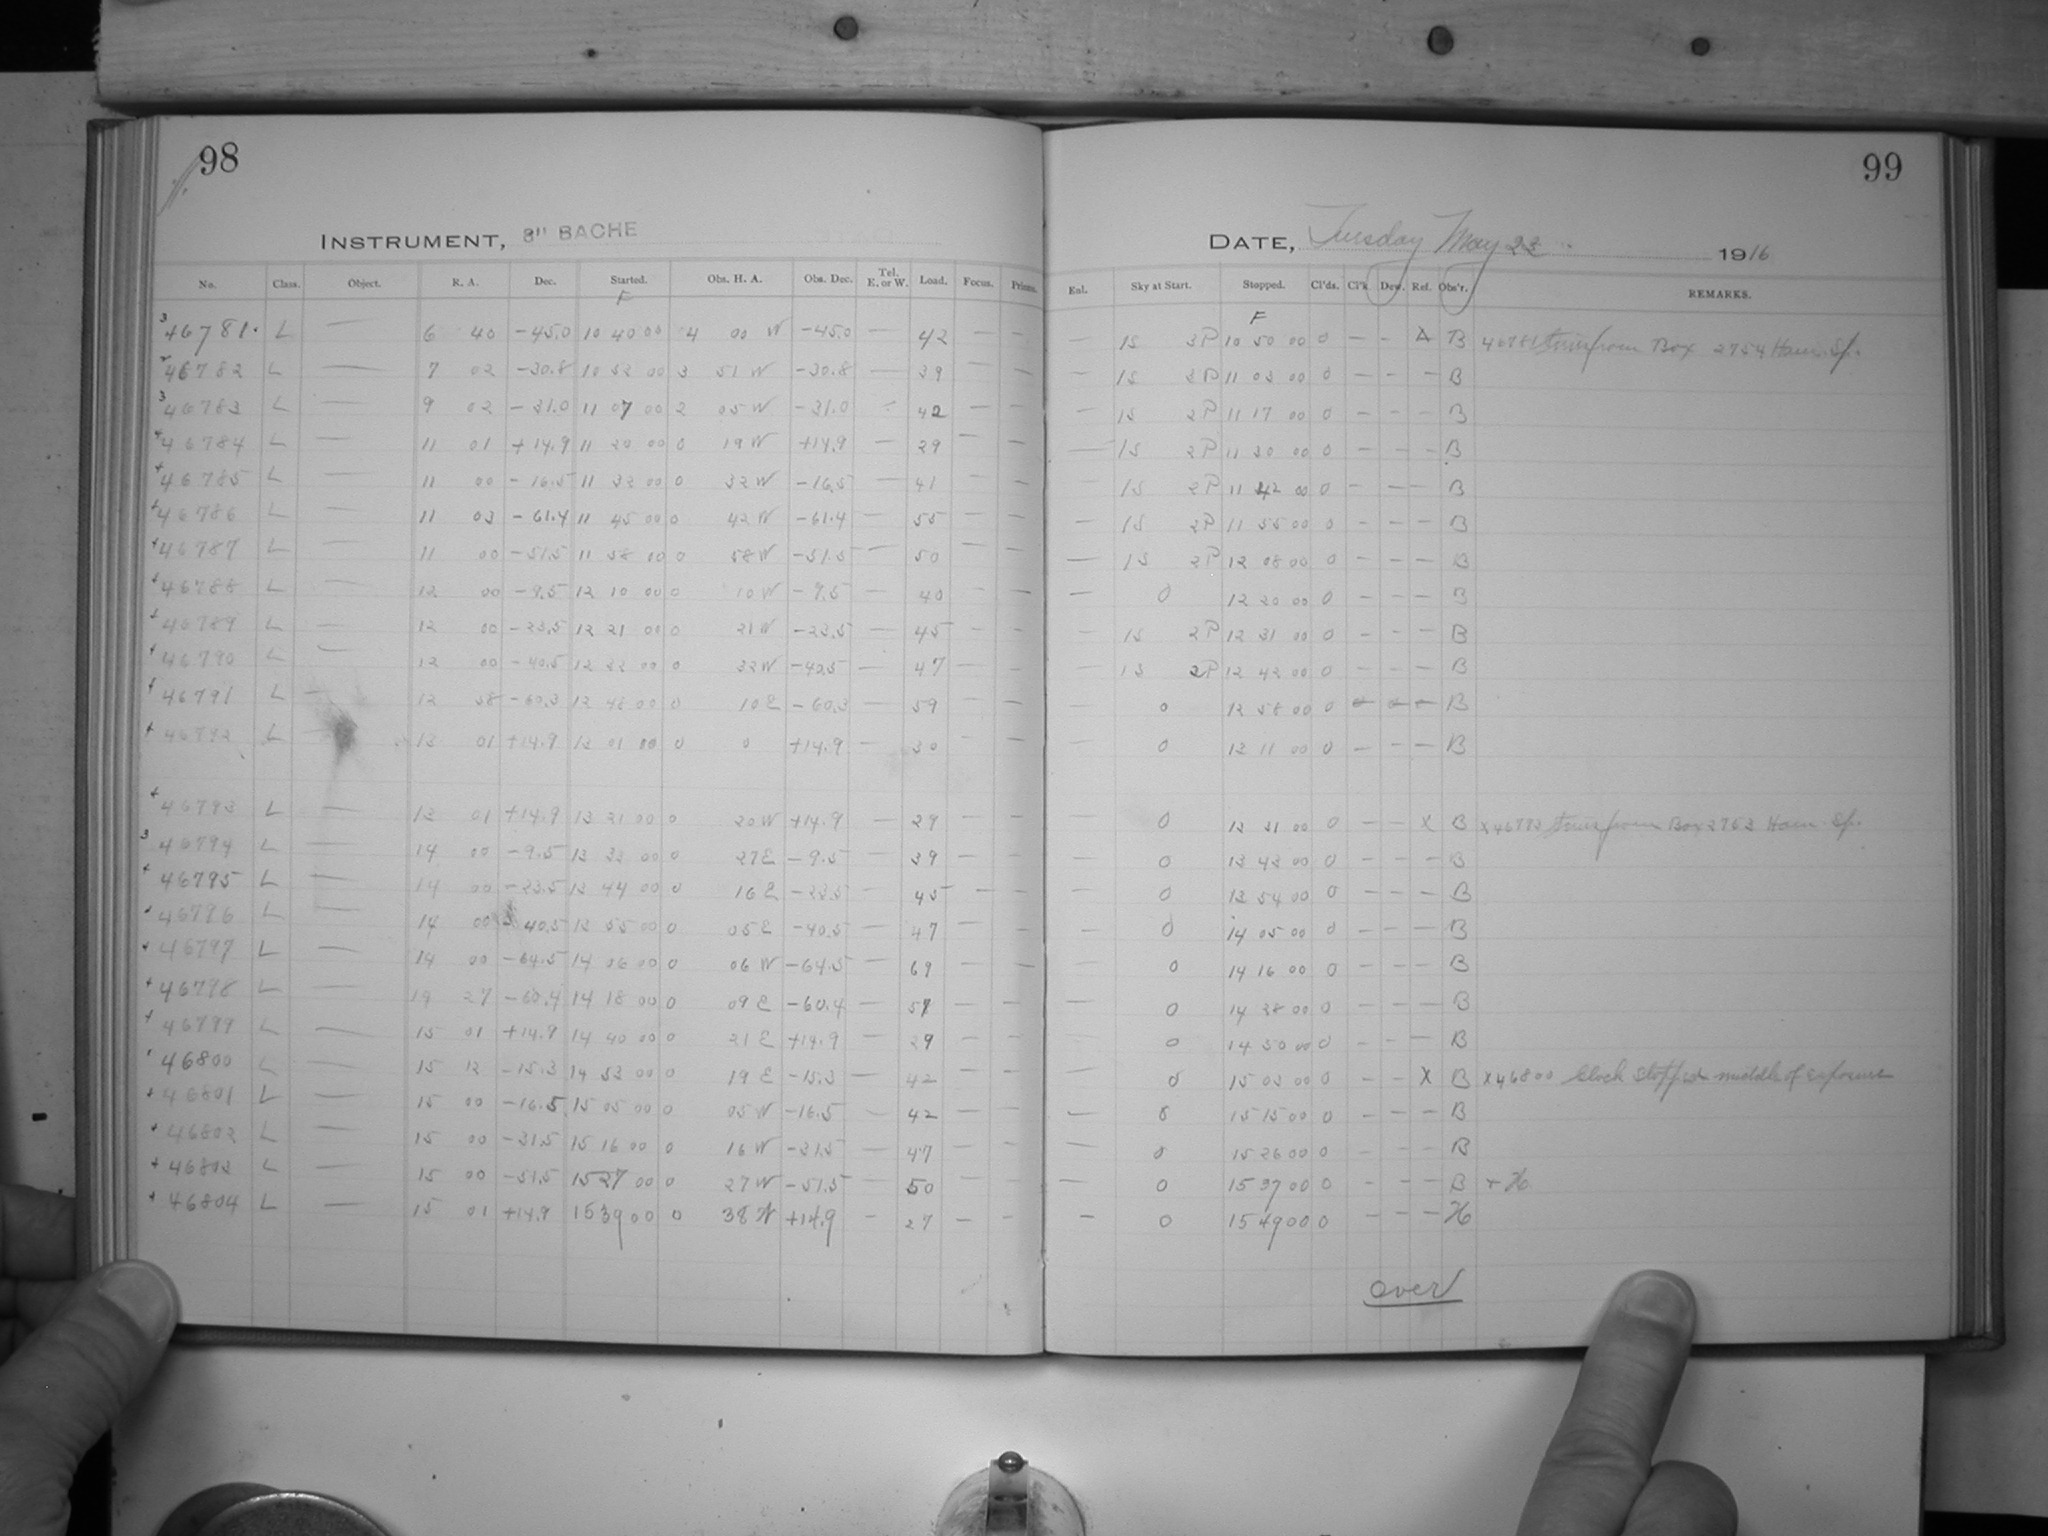 98
INSTRUMENT, 8" BACHE
No. Class. Object. R. A. Dec. Started. Obs. H. A. Obs. Dec. Tel. E. or W. Load. Focus. Prisms.
F
3 46781. L — 6 40 -45.0 10 40 00 4 00 W -45.0 — 42 — —
46782 L — 7 02 -30.8 10 53 00 3 51 W -30.8 — 39 — —
3 46783 L — 9 02 -31.0 11 07 00 2 05 W -31.0 — 42 — —
+ 46784 L — 11 01 +14.9 11 20 00 0 19 W +14.9 — 29 — —
+ 46785 L — 11 00 -16.5 11 32 00 0 32 W -16.5 — 41 — —
46786 L — 11 03 -61.4 11 45 00 0 42 W -61.4 — 55 — —
+ 46787 L — 11 00 -51.5 11 58 00 0 58 W -51.5 — 50 — —
46788 L — 12 00 -9.5 12 10 00 0 10 W -9.5 — 40 — —
46789 L — 12 00 -23.5 12 21 00 0 21 W -23.5 — 45 — —
46790 L — 12 00 -40.5 12 32 00 0 32 W -40.5 — 47 — —
46791 L — 12 58 -60.3 12 48 00 0 10 E -60.3 — 59 — —
+ 46792 L 13 01 +14.9 13 01 00 0 0 +14.9 — 30 — —
+ 46793 L — 13 01 +14.9 13 21 00 0 20 W +14.9 — 29 — —
3 46794 L — 14 00 -9.5 13 33 00 0 27 E -9.5 — 39 — —
+ 46795 L — 14 00 -23.5 13 44 00 0 16 E -23.5 — 45 — —
46796 L — 14 00 -40.5 13 55 00 0 05 E -40.5 — 47 — —
+ 46797 L — 14 00 -64.5 14 06 00 0 06 W -64.5 — 69 — —
+ 46798 L — 14 27 -60.4 14 18 00 0 09 E -60.4 — 57 — —
+ 46799 L — 15 01 +14.9 14 40 00 0 21 E +14.9 — 29 — —
46800 L — 15 12 -15.3 14 53 00 0 19 E -15.3 — 42 — —
+ 46801 L — 15 00 -16.5 15 05 00 0 05 W -16.5 — 42 — —
+ 46802 L — 15 00 -31.5 15 16 00 0 16 W -31.5 — 47 — —
+ 46803 L — 15 00 -51.5 15 27 00 0 27 W -51.5 — 50 — —
+ 46804 L — 15 01 +14.9 15 39 00 0 38 W +14.9 — 27 — —
99
DATE, Tuesday May 23 1916
Enl. Sky at Start. Stopped. Cl'ds. Cl'k Dew. Ref. Obs'r. REMARKS.
F
— 1S 3P 10 50 00 0 — — B 46781 from Box 2754 Ham. Sp.
— 1S 2P 11 03 00 0 — — — B
— 1S 2P 11 17 00 0 — — — B
— 1S 2P 11 30 00 0 — — — B
— 1S 2P 11 42 00 0 — — — B
— 1S 2P 11 55 00 0 — — — B
— 1S 2P 12 08 00 0 — — — B
— 0 12 20 00 0 — — — B
— 1S 2P 12 31 00 0 — — — B
— 1S 2P 12 42 00 0 — — — B
— 0 12 58 00 0 — — — B
— 0 13 11 00 0 — — — B
— 0 13 31 00 0 — — X B X 46793 from Box 2763 Ham. Sp.
— 0 13 43 00 0 — — — B
— 0 13 54 00 0 — — — B
— 0 14 05 00 0 — — — B
— 0 14 16 00 0 — — — B
— 0 14 38 00 0 — — — B
— 0 14 50 00 0 — — — B
— 0 15 03 00 0 — — X B X 46800 Clock stopped middle of exposure
— 0 15 15 00 0 — — — B
— 0 15 26 00 0 — — — B
— 0 15 37 00 0 — — — B + H
— 0 15 49 00 0 — — — H
over